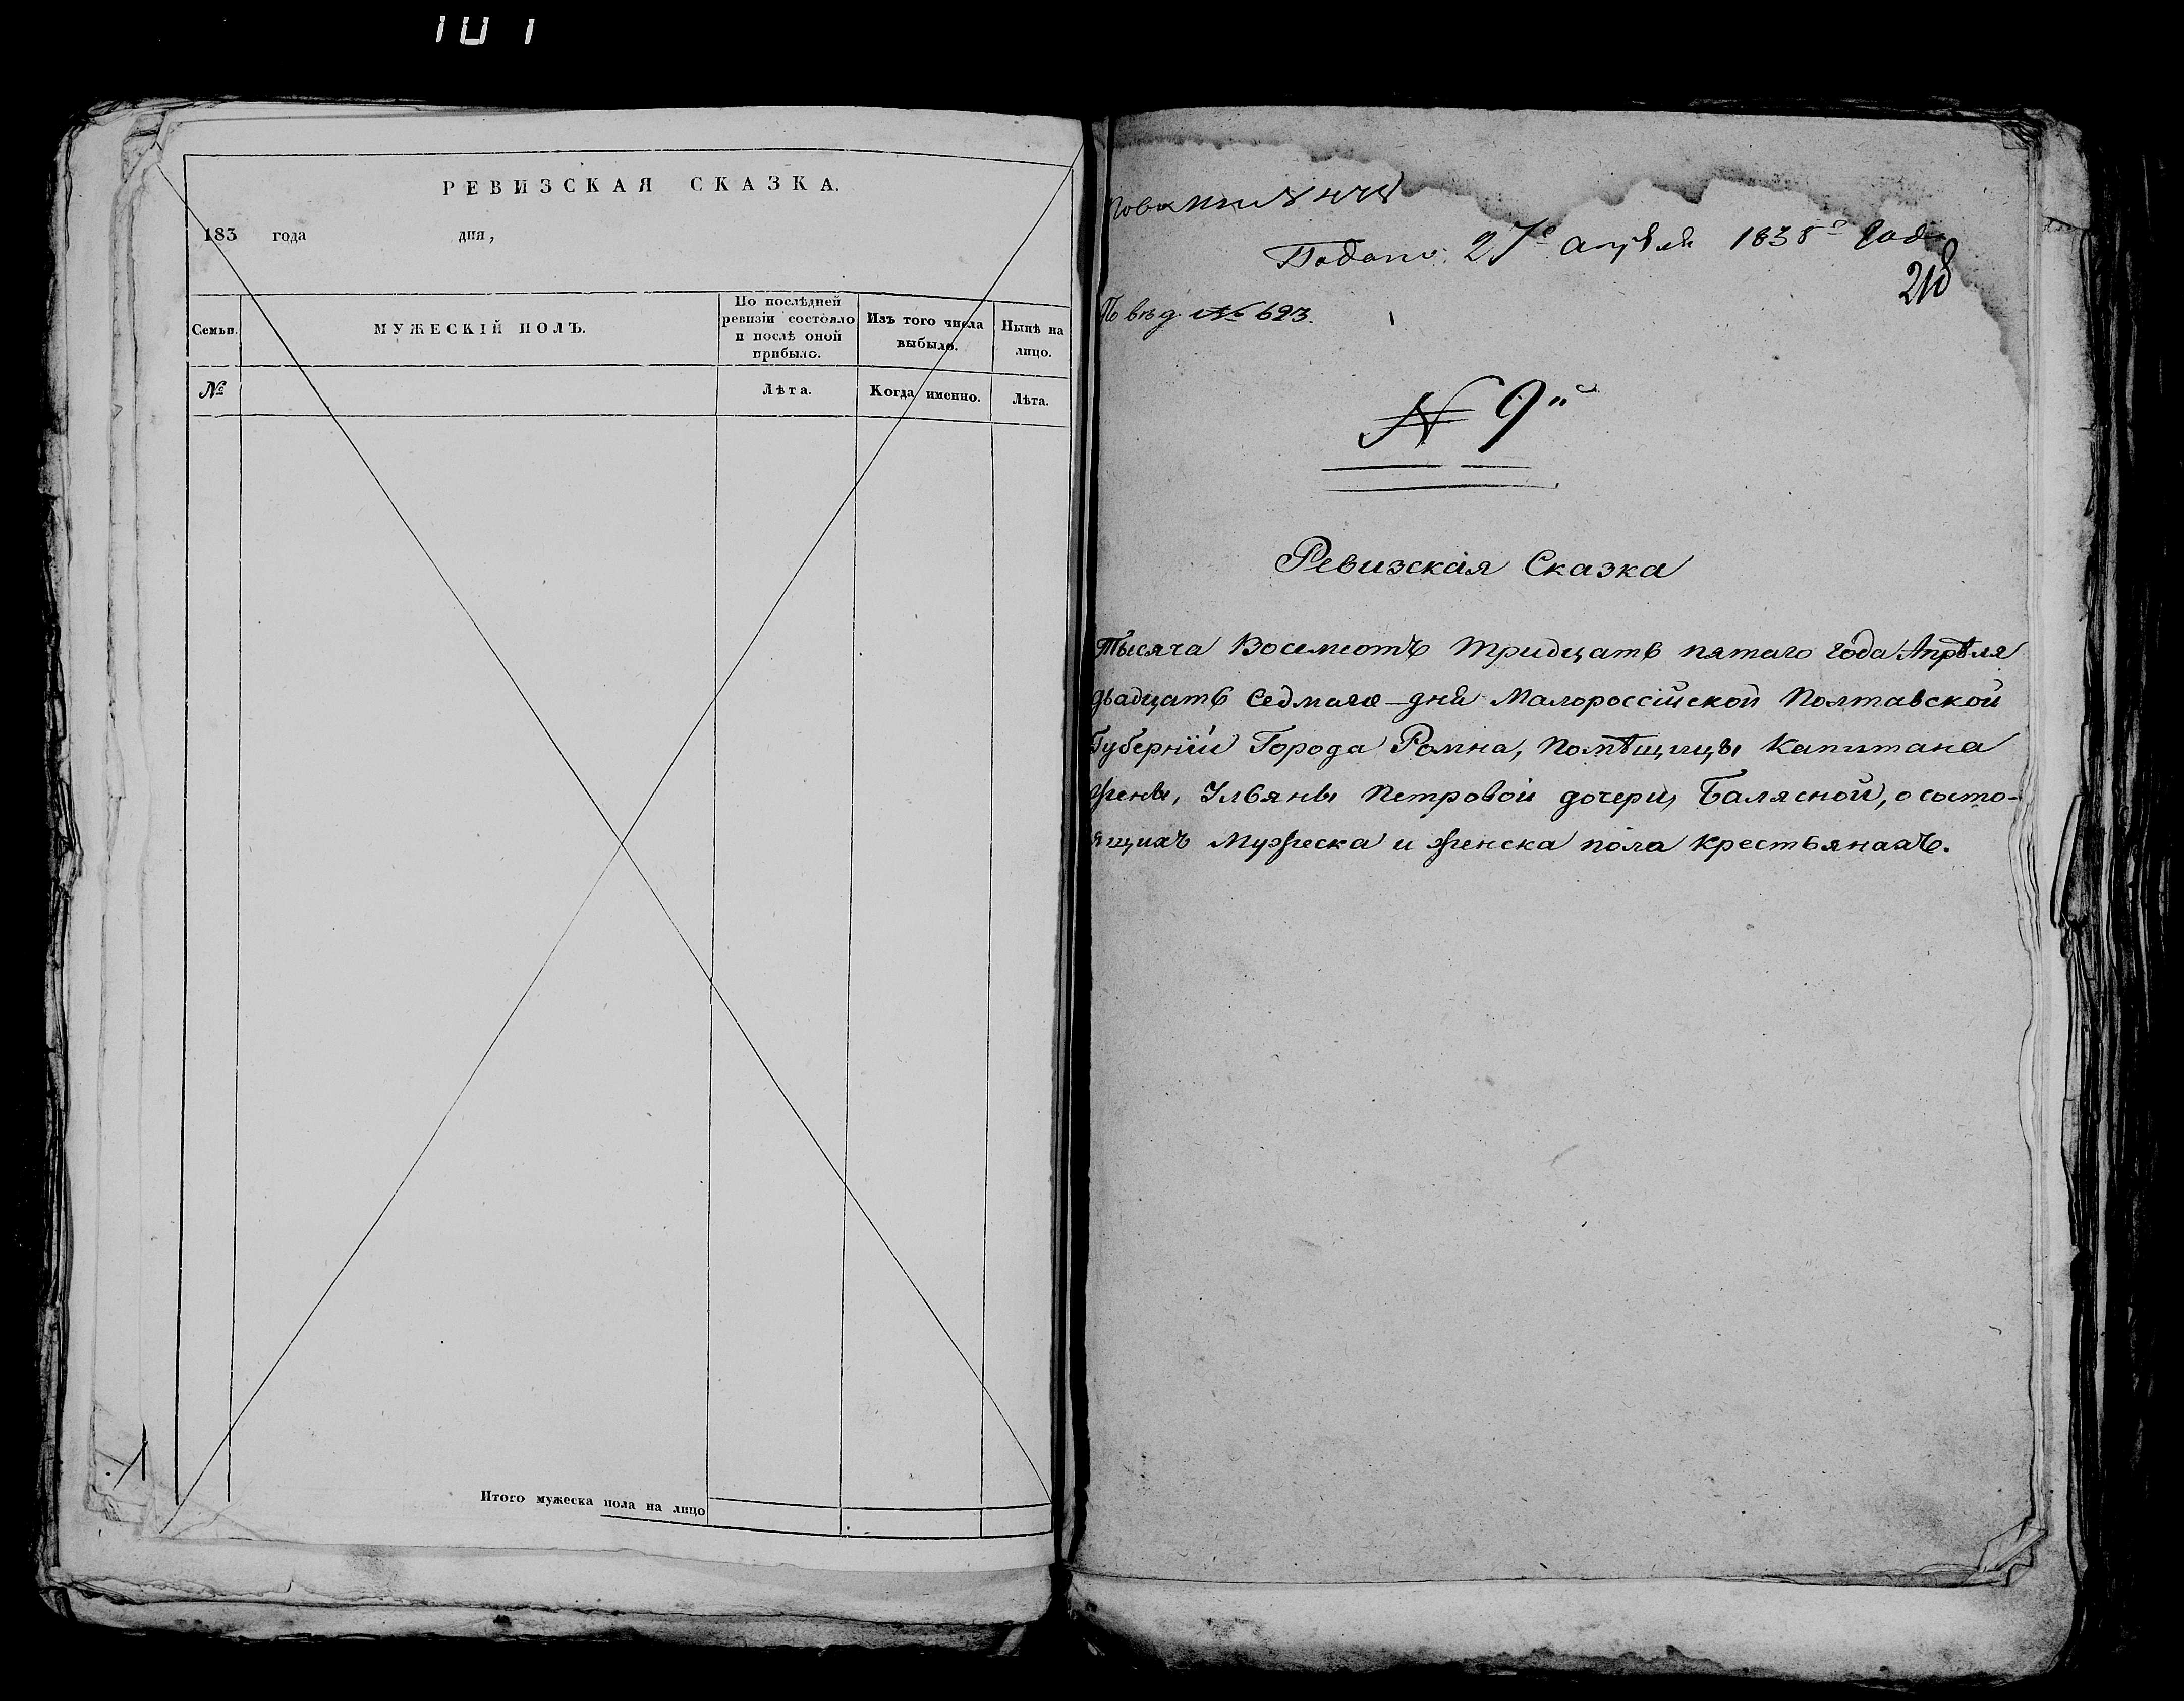 101
РЕВИЗСКАЯ СКАЗКА.
183 года дня,
Семьи.
МУЖЕСКІЙ ПОЛЪ.
По послѣдней
ревизіи состояло
и послѣ оной
прибыло.
Изъ того числа
выбыло.
Нынѣ на
лицо.
№
Лѣта.
Когда именно.
Лѣта.
Итого мужеска пола на лицо
Подано 27е апрѣля 1835го года
218
№ 623.
№ 9й
Ревизская Сказка
Тысяча Восемсотъ тридцать пятаго года Апрѣля
двадцать седмаго дня Малороссійской Полтавской
Губерніи Города Ромна, помѣщицы Капитана
жены, Ульяны Петровой дочери, Балясной, о состо-
ящихъ мужеска и женска пола крестьянахъ.